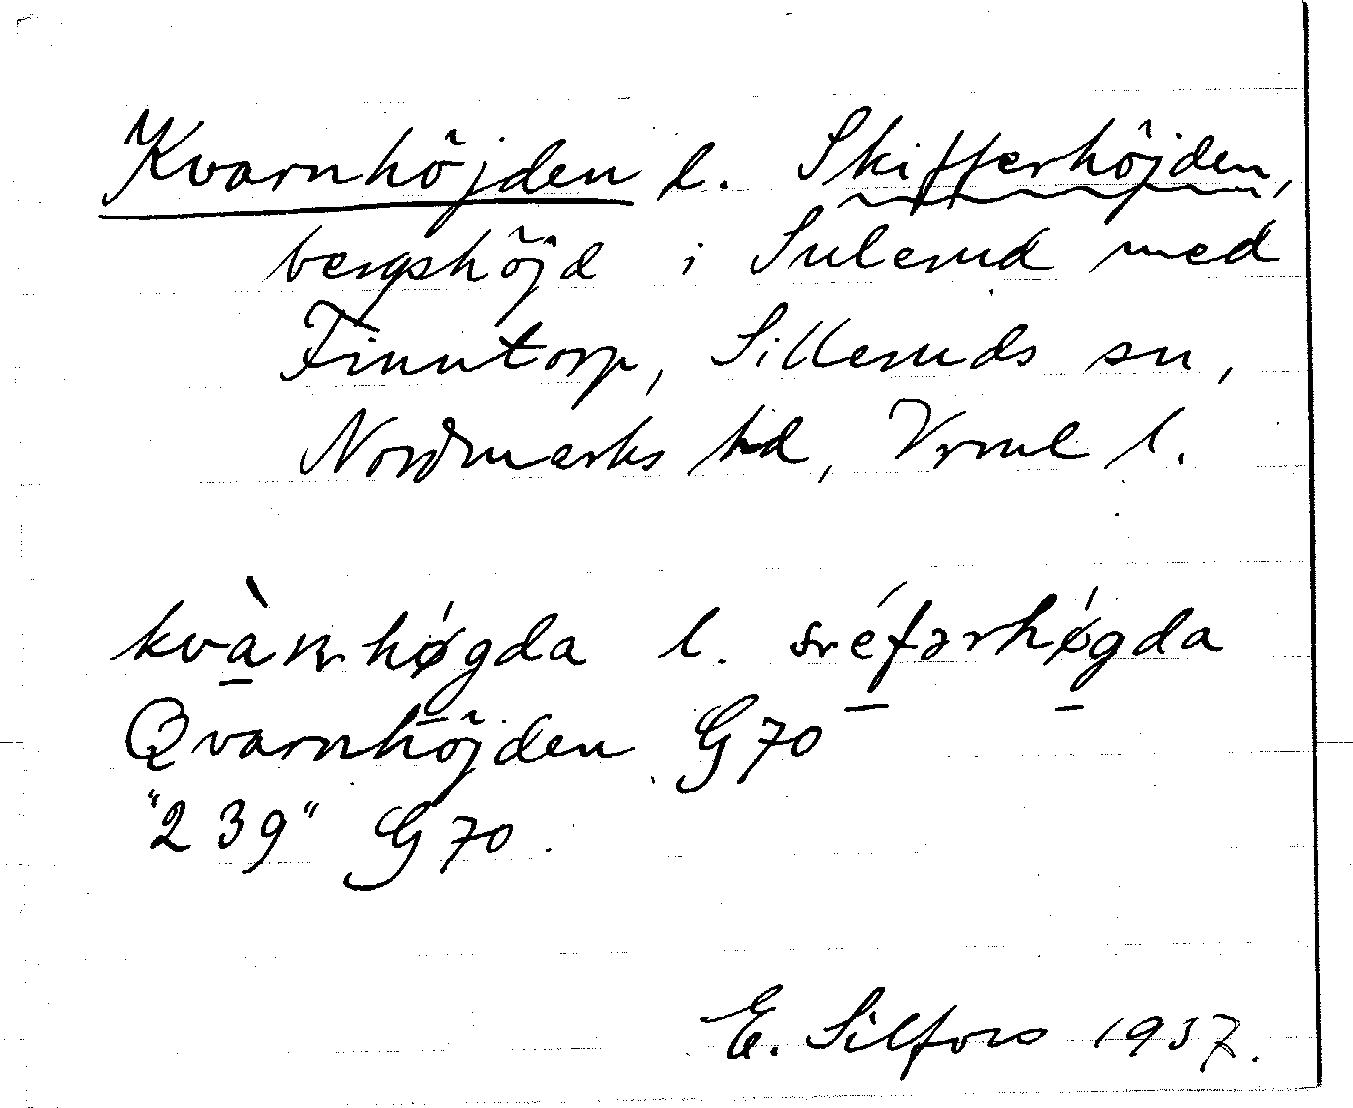 Kvarnhöjden l. Skifferhöjden,
bergshöjd i Sulerud med
Finntorp, Silleruds sn,
Nordmarks hd, Vrml l.
kvà̱ɳhǿ̱gda l. sʀé̱fərhǿ̱gda
Qvarnhöjden G 70
"239" G 70.
E. Silfors 1937.